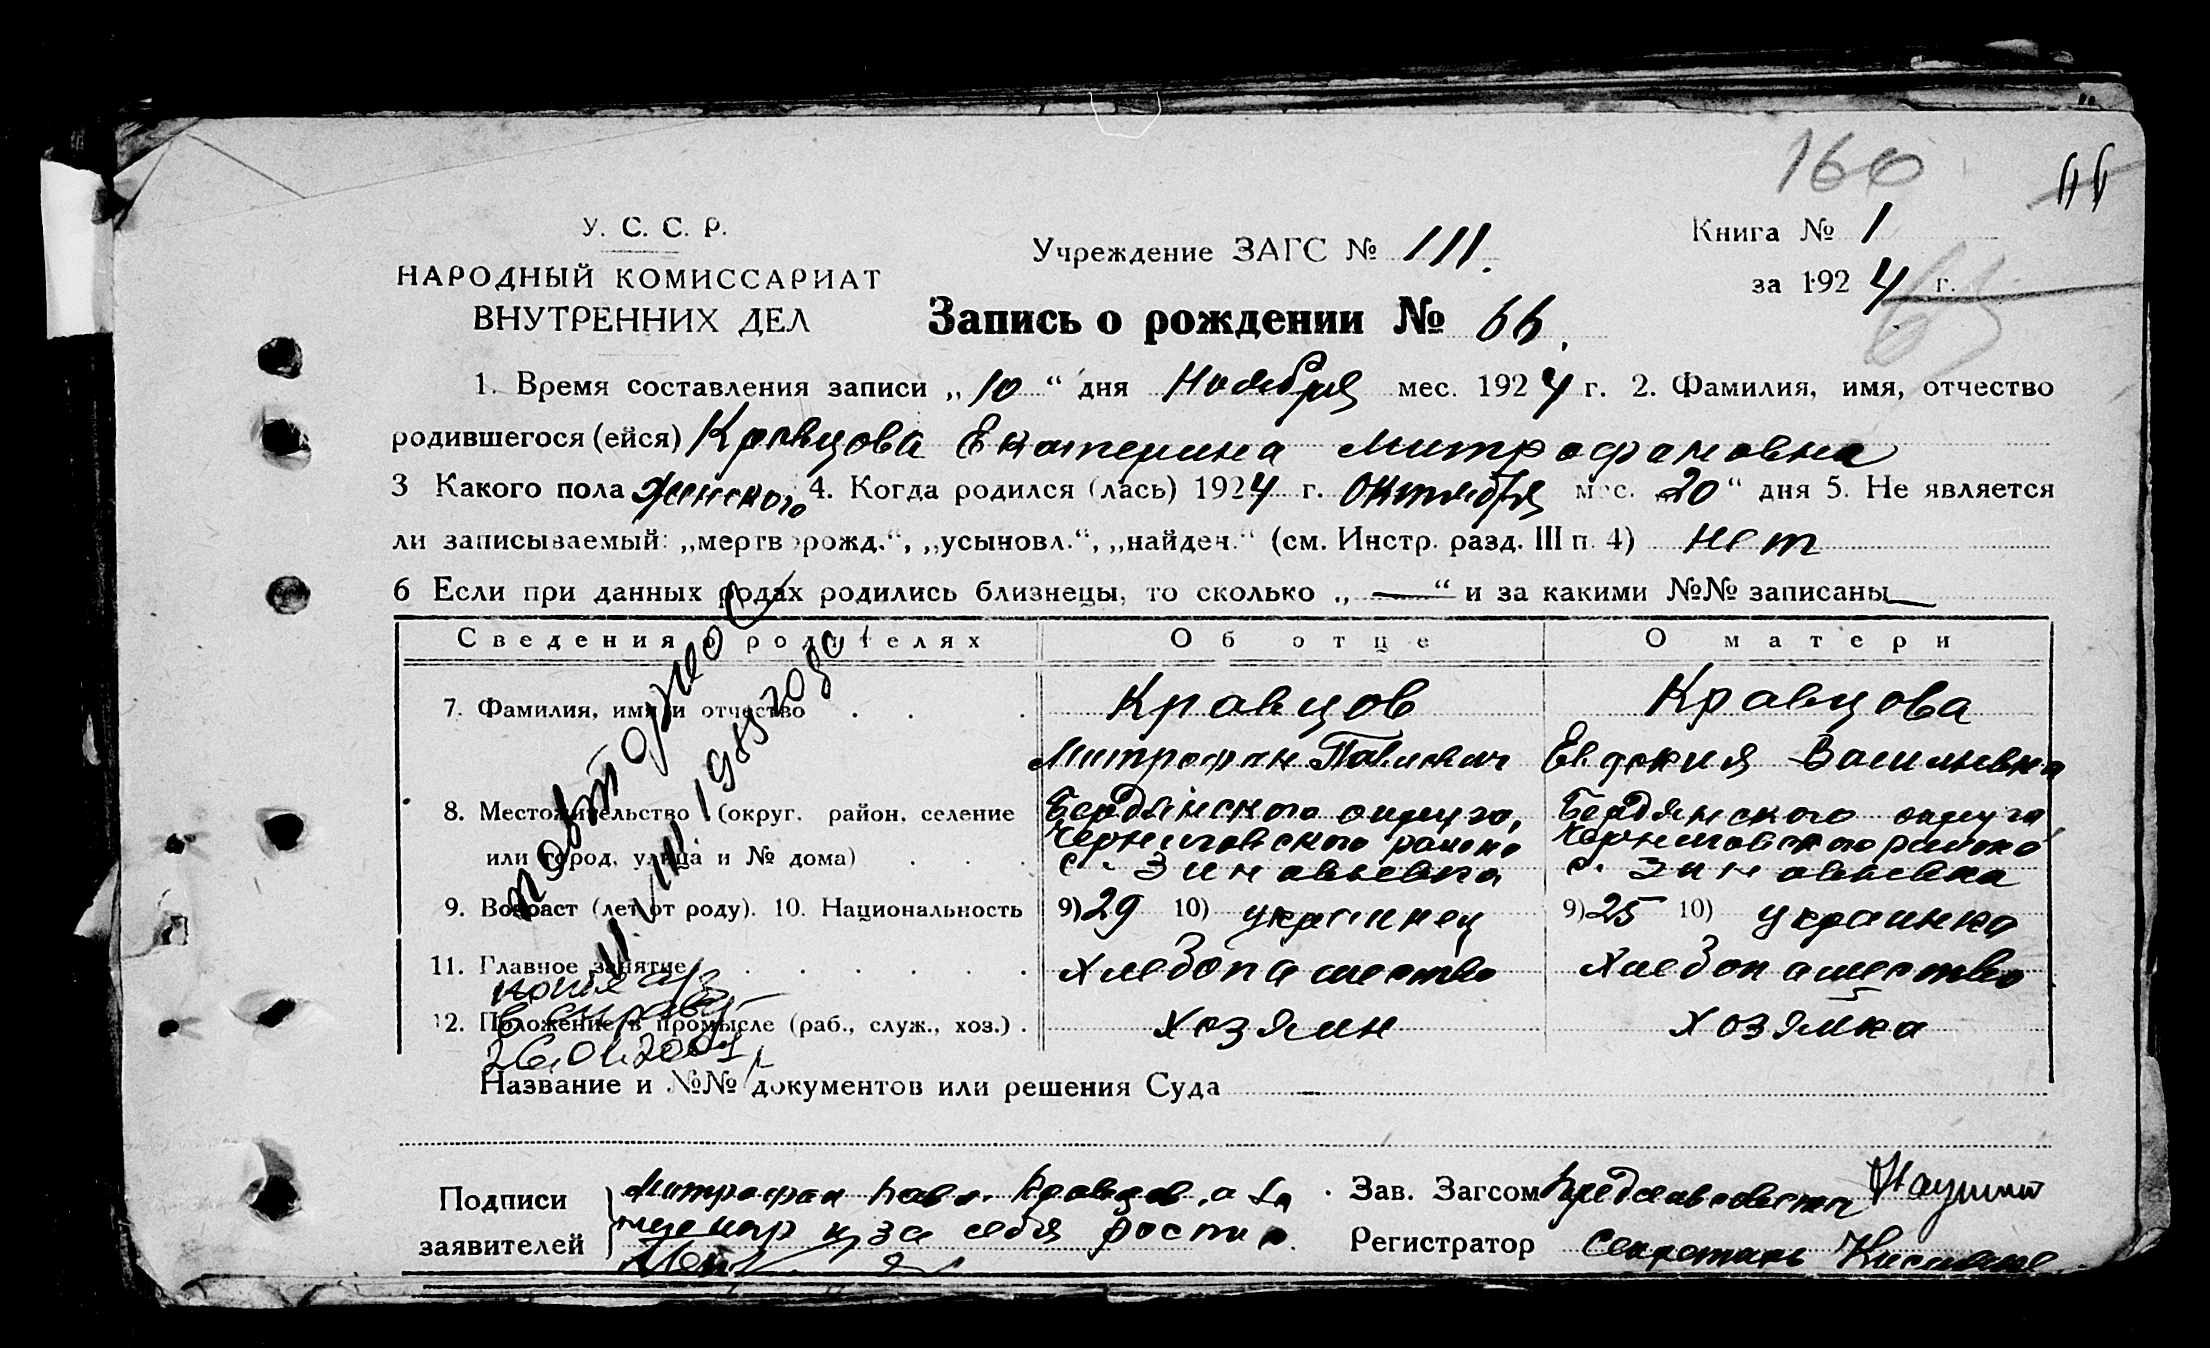 160
66
У. С. С. Р.
НАРОДНЫЙ КОМИССАРИАТ
ВНУТРЕННИХ ДЕЛ
Учреждение ЗАГС № 111.
Книга № 1
за 1924 г.
65
Запись о рождении № 66.
1. Время составления записи „10“ дня Ноября мес. 1924 г. 2. Фамилия, имя, отчество
родившегося (ейся) Кравцова Екатерина Митрофановна
3 Какого пола женского 4. Когда родился (лась) 1924 г. октября мес. „20“ дня 5. Не является
ли записываемый: „мертворожд.“, „усыновл.“, „найден.“ (см. Инстр. разд. III п. 4) нет
6 Если при данных родах родились близнецы, то сколько „—“ и за какими №№ записаны —
Сведения о родителях Об отце О матери
7. Фамилия, имя и отчество Кравцов Кравцова
Митрофан Павлович Евдокия Васильевна
8. Местожительство (округ, район, селение Бердянского округа, Бердянского округа,
или город, улица и № дома) Черниговского района Черниговского района
с. Зиновьевка с. Зиновьевка
9. Возраст (лет от роду). 10. Национальность 9) 29 10) украинец 9) 25 10) украинка
11. Главное занятие Хлебопашество Хлебопашество
12. Положение в промысле (раб., служ., хоз.) хозяин хозяйка
повторное
1985 года
копия
26.01.2001
Название и №№ документов или решения Суда —
Подписи
заявителей
Митрофан Павл. Кравцов, а за
и за себя
Зав. Загсом
Регистратор Секретарь